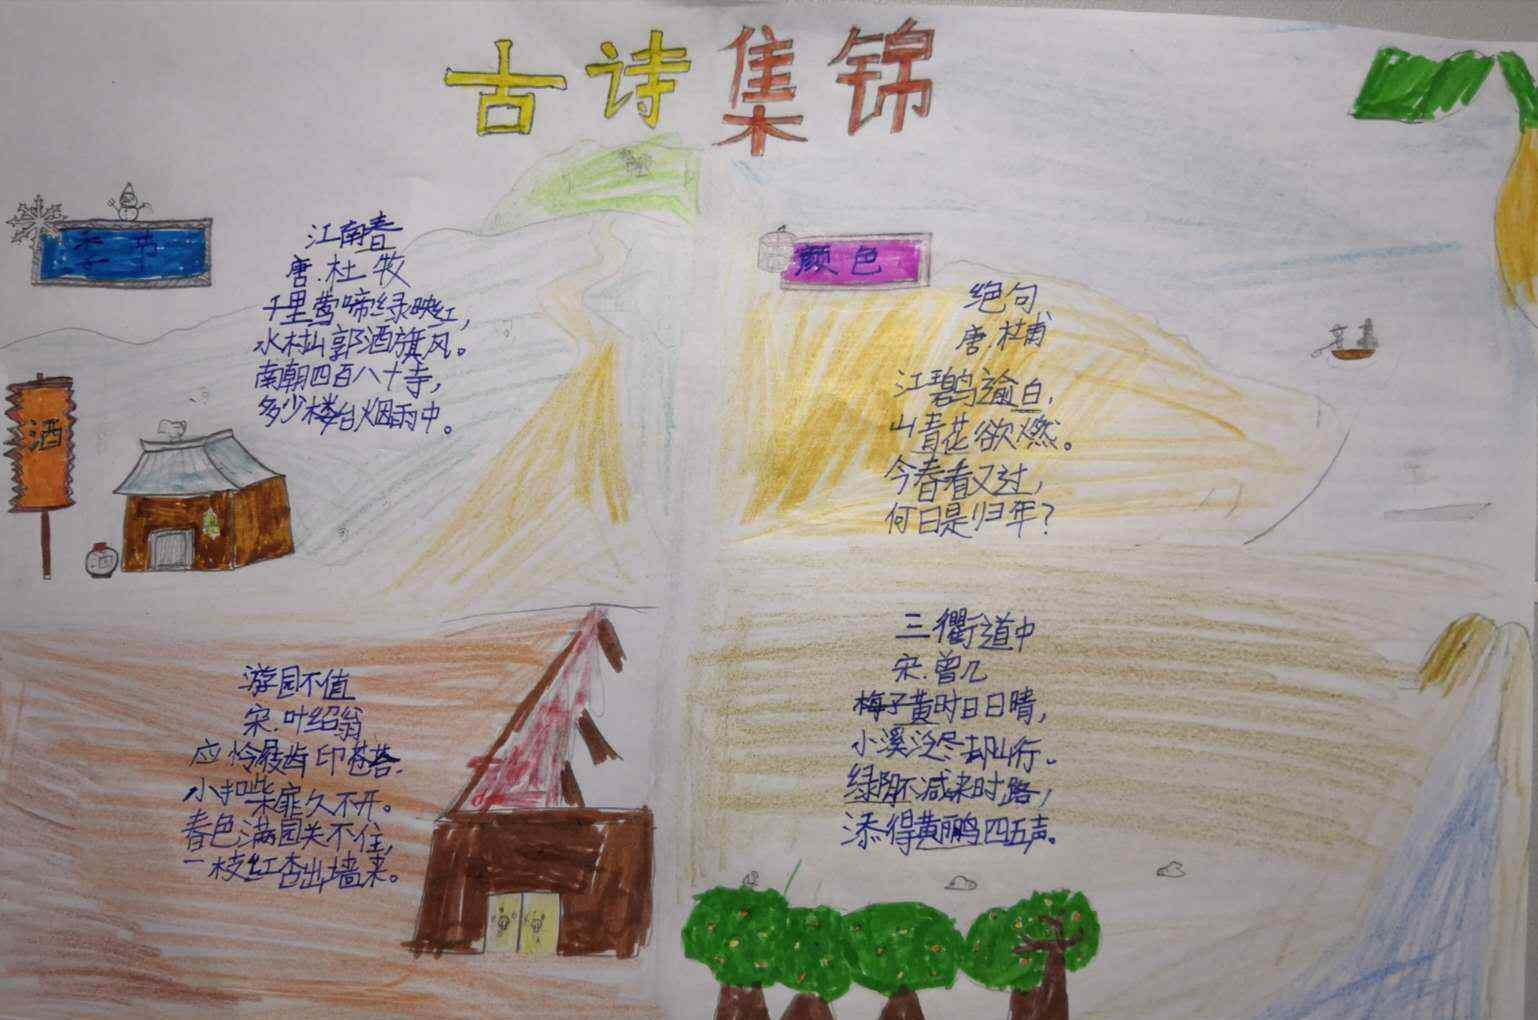 古诗集锦
季节
江南春
唐.杜牧
千里莺啼绿映红，
水村山郭酒旗风。
南朝四百八十寺，
多少楼台烟雨中。
酒
游园不值
宋.叶绍翁
应怜屐齿印苍苔.
小扣柴扉久不开。
春色满园关不住，
一枝红杏出墙来。
颜色
绝句
唐杜甫
江碧鸟逾白，
山青花欲燃。
今春看又过，
何日是归年？
三衢道中
宋.曾几
梅子黄时日日晴，
小溪泛尽却山行。
绿阴不减来时路，
添得黄鹂四五声。